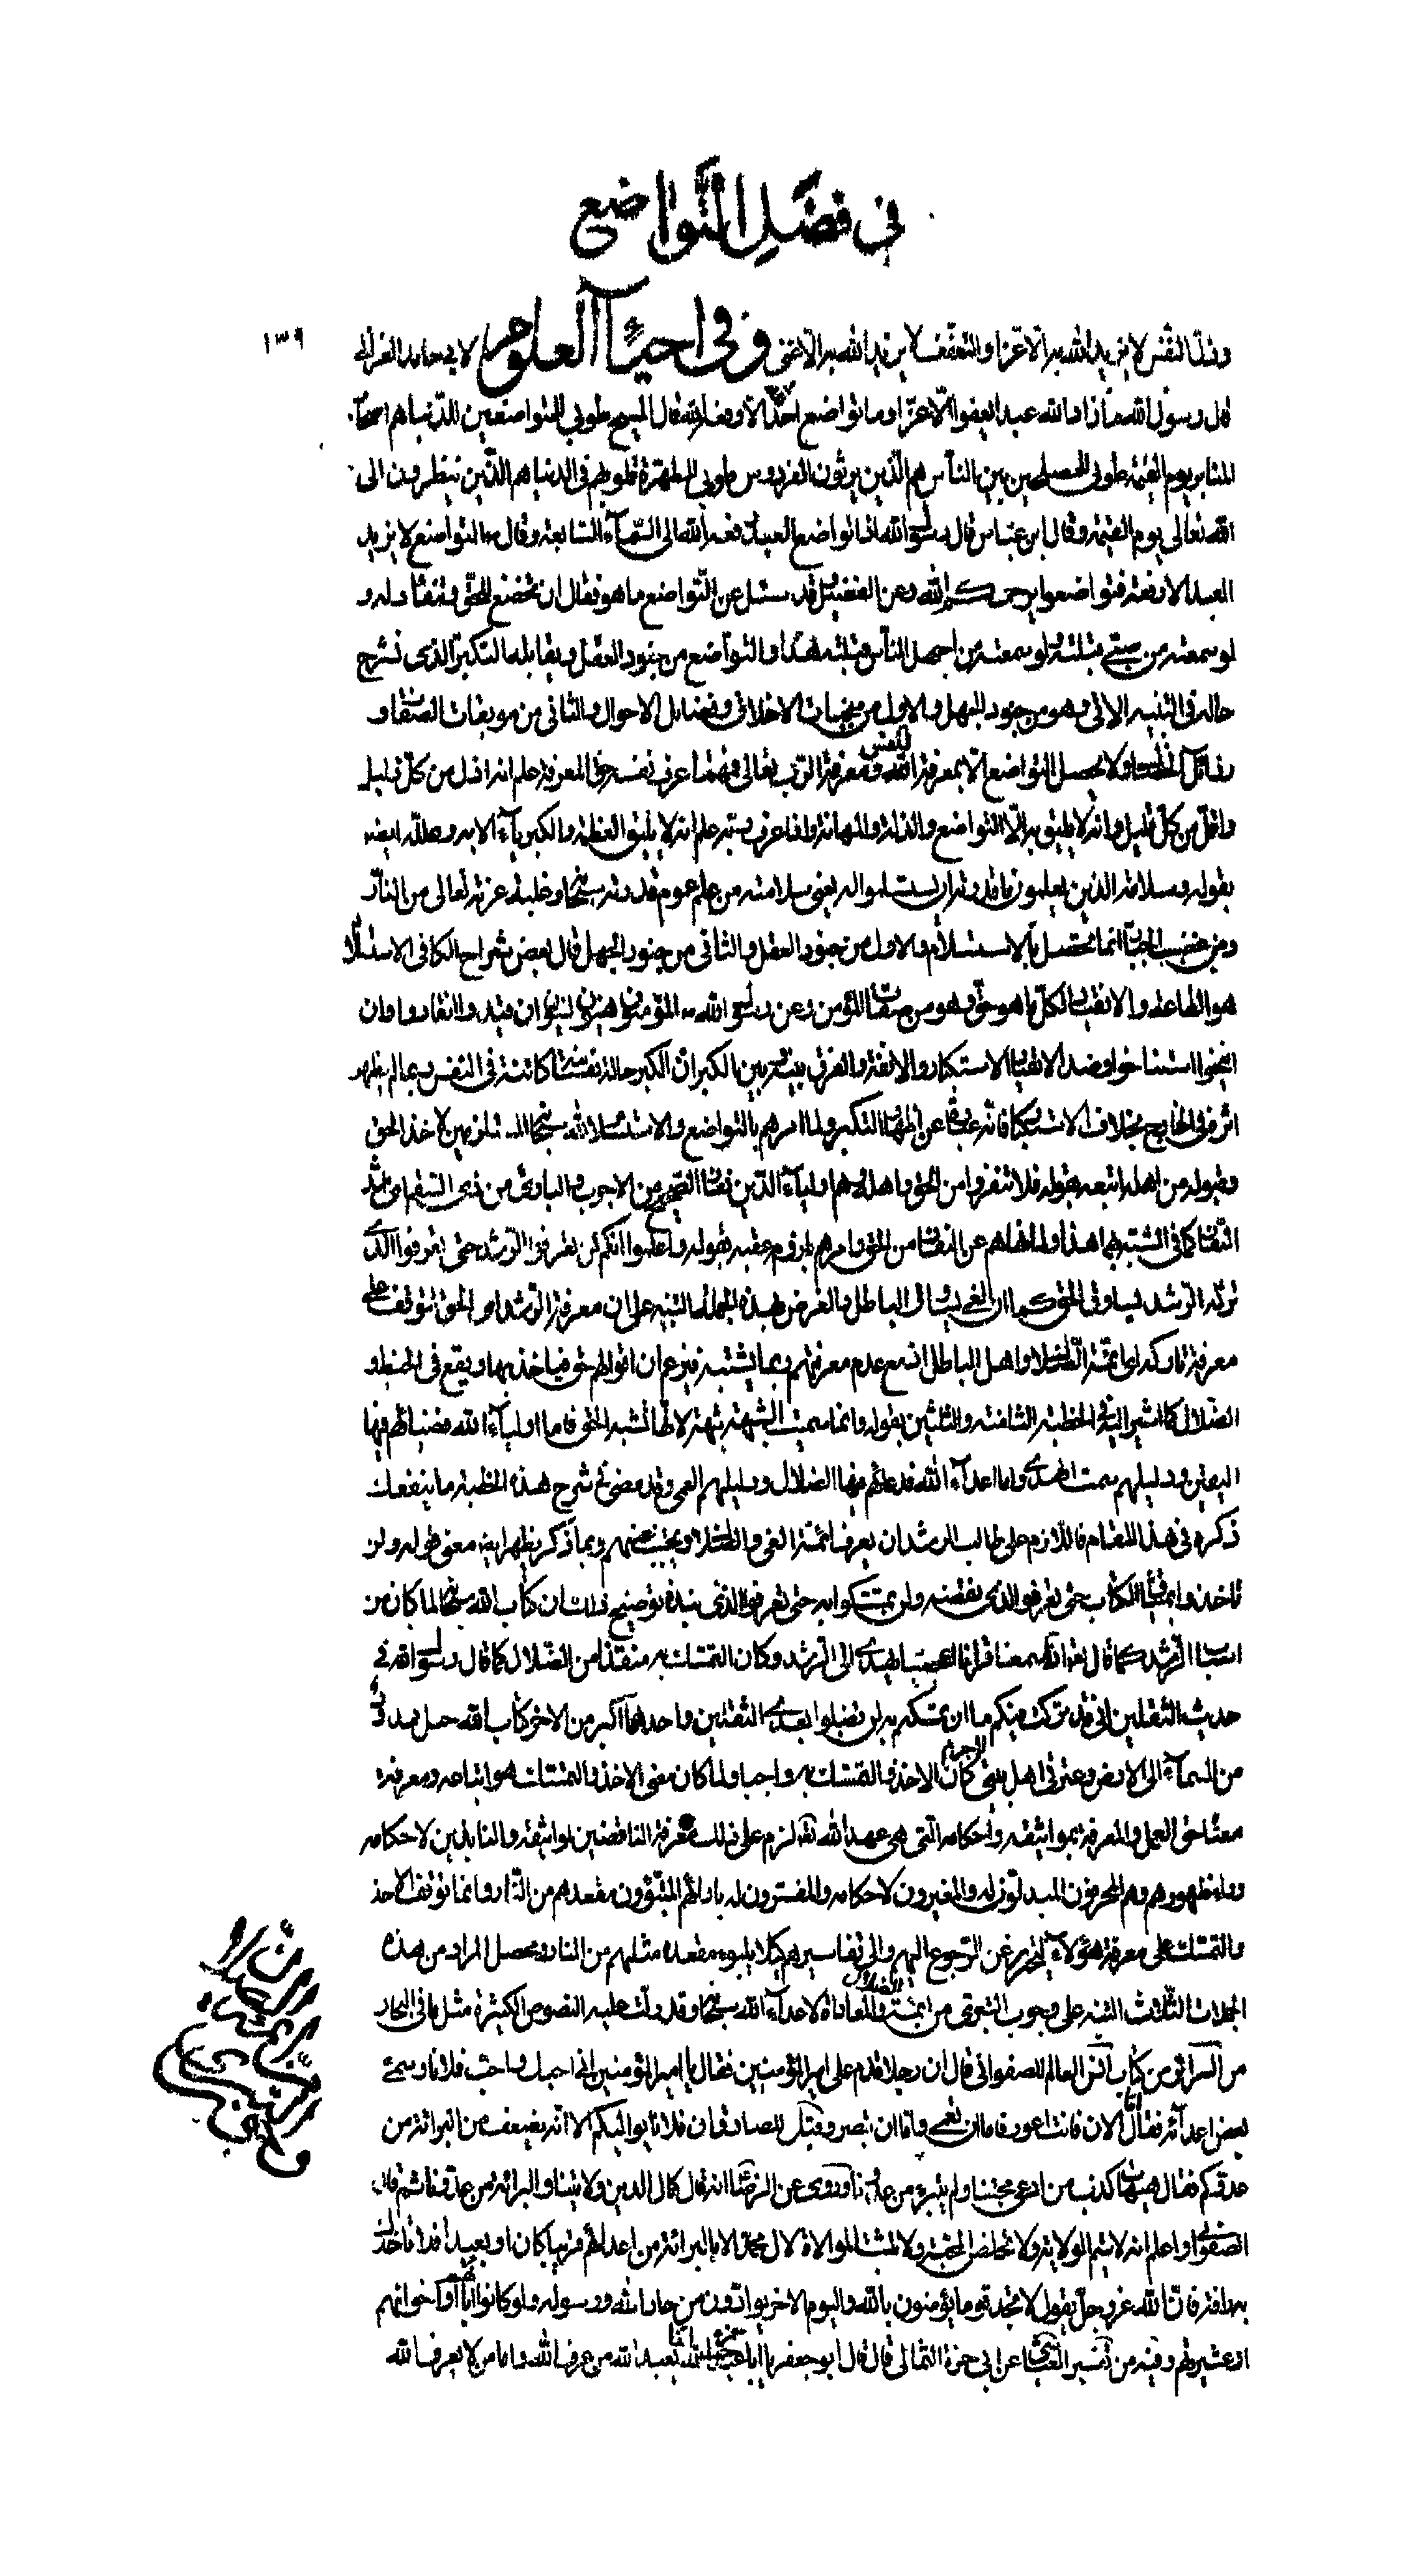 في فضل التواضع
١٣٩
وذل النفس لا يزيد الله به الا عزا والتعفف لا يزيد الله به الا غنى وفي احياء العلوم لابي حامد الغزالي
قال رسول الله ما زاد الله عبدا بعفو الا عزا وما تواضع احد لله الا رفعه الله قال المسيح طوبى للمتواضعين للدنيا هم اصحاب
المنابر يوم القيمة طوبى للمصلحين بين الناس هم الذين يرثون الفردوس طوبى للمطهرة قلوبهم في الدنيا هم الذين ينظرون الى
الله تعالى يوم القيمة وقال ابن عباس قال رسول الله اذا تواضع العبد رفعه الله الى السماء السابعة وقال ص التواضع لا يزيد
العبد الا رفعة فتواضعوا يرحمكم الله وعن الفضيل قد سئل عن التواضع ما هو فقال ان تخضع للحق وتنقاد له و
لو سمعته من صبي قبلته ولو سمعته من اجهل الناس قبلته هذا والتواضع من جنود العقل ويقابله التكبر الذي نشرح
حاله في التنبيه الاتي وهو من جنود الجهل والاول من منجيات الاخلاق وفضايل الاحوال والثاني من موبقات الصفات و
رذائل ولا يحصل التواضع الا بمعرفة النفس ومعرفة الرب تعالى فمهما عرف نفسه حق المعرفة علم انه اذل من كل ذليل
واقل من كل قليل وانه لا يليق به الا التواضع والذلة والمهانة واذا عرف ربه علم انه لا يليق العظمة والكبرياء الا به وعلله ايضا
بقوله وسلامة الذين يعلمون ما قدرته ان يستسلموا له يعني سلامته من علم عموم قدرته سبحانه وغلبة عزته تعالى من النار
ومن غضب الجبار انما تحصل بالاستسلام والاول من جنود العقل والثاني من جنود الجهل قال بعض شراح الكافي الاستسلام
هو الطاعة والانقياد لكل ما هو حق وهو من صفات المؤمن وعن رسول الله ص المؤمنون هينون لينون ان قيد وانقادوا وان
انيخوا استناخوا وضد الانقياد الاستكبار والانفة والفرق بينه وبين الكبر ان الكبر حالة نفسانية كائنة في النفس ربما لم يظهر
اثره في الخارج بخلاف الاستكبار فانه عبارة عن اظهار التكبر ولما امرهم بالتواضع والاستسلام لله سبحانه المستلزمين لاخذ الحق
وقبوله من اهله اتبعه بقوله فلا تنفروا من الحق واهله وهم اولياء الدين نفار الصحيح من الاجرب والبارئ من ذي السقم اي مثل
النفار كما في الشبه بهما هذا ولما نهاهم عن النفار من الحق وامرهم بلزومه عقبه بقوله واعلموا انكم لن تعرفوا الرشد حتى تعرفوا الذي
تركه الرشد يساوق الحق كما ان الغي يساوق الباطل والغرض بهذه الجملة التنبيه على ان معرفة الرشد او الحق تتوقف على
معرفة تاركه اي ائمة الضلال واهل الباطل اذ مع عدم معرفتهم ربما يشتبه فيزعم ان اقوالهم حق فياخذ بها ويقع في الخبط و
الضلال كما اشير اليه في الخطبة الثامنة والثلثين بقوله وانما سميت الشبهة شبهة لانها تشبه الحق فاما اولياء الله فضياؤهم فيها
اليقين ودليلهم سمت الهدى واما اعداء الله فدعاؤهم فيها الضلال ودليلهم العمى وقد مضى في شرح هذه الخطبة ما ينفعك
ذكره في هذا المقام فاللازم على طالب الرشد ان يعرف ائمة الغي والضلال ويجتنب عنهم وبما ذكر يظهر ايضا معنى قوله ولن
تاخذوا بميثاق الكتاب حتى تعرفوا الذي نقضه ولن تمسكوا به حتى تعرفوا الذي نبذه توضيح ذلك ان كتاب الله سبحانه لما كان من
اسباب الرشد كما قال تعالى انا سمعنا قرانا عجبا يهدي الى الرشد وكان التمسك به منقذا من الضلال كما قال رسول الله في
حديث الثقلين اني قد تركت فيكم ما ان تمسكتم به لن تضلوا بعدي الثقلين واحدهما اكبر من الاخر كتاب الله حبل ممدود
من السماء الى الارض وعترتي اهل بيتي لاجرم كان الاخذ والتمسك به واجبا ولما كان معنى الاخذ والتمسك هو اتباعه ومعرفة
معناه حق العمل والمعرفة بمواثيقه واحكامه التي هي عهد الله لزم على ذلك معرفة الناقضين لمواثيقه والنابذين لاحكامه
وراء ظهورهم وهم المحرفون المبدلون له والمغيرون لاحكامه والمفسرون له بارائهم المتبوؤن مقعدهم من النار وانما توقف الاخذ
والتمسك على معرفة هؤلاء ليتحرز عن الرجوع اليهم والى تفاسيرهم كيلا يتبوء مقعده مثلهم من النار ومحصل المراد من هذه
الجملات الثلاث التنبيه على وجوب التبري من ائمة الضلال والمعاداة لاعداء الله سبحانه وقد دلت عليه النصوص الكثيرة مثل ما في البحار
من السرائر من كتاب انس العالم للصفواني قال ان رجلا قدم على امير المؤمنين فقال يا امير المؤمنين اني احبك واحب فلانا وسمى
بعض اعدائه فقال اما الان فانت اعور فاما ان تعمى واما ان تبصر وقيل للصادق ان فلانا يواليكم الا انه يضعف من البرائة من
عدوكم فقال هيهات كذب من ادعى محبتنا ولم يتبرء من عدونا وروى عن الرضا انه قال كمال الدين ولايتنا والبرائة من عدونا ثم قال
الصفواني واعلم انه لا يتم الولاية ولا تخلص المحبة ولا تثبت الموالاة لال محمد الا بالبرائة من اعدائهم قريبا كان او بعيدا فلا تاخذك
به رافة فان الله عز وجل يقول لا تجد قوما يؤمنون بالله واليوم الاخر يوادون من حاد الله ورسوله ولو كانوا اباءهم او ابناءهم او اخوانهم
او عشيرتهم وفيه من تفسير العياشي عن ابي حمزة الثمالي قال قال ابو جعفر يا ابا حمزة انما يعبد الله من عرف الله واما من لا يعرف الله